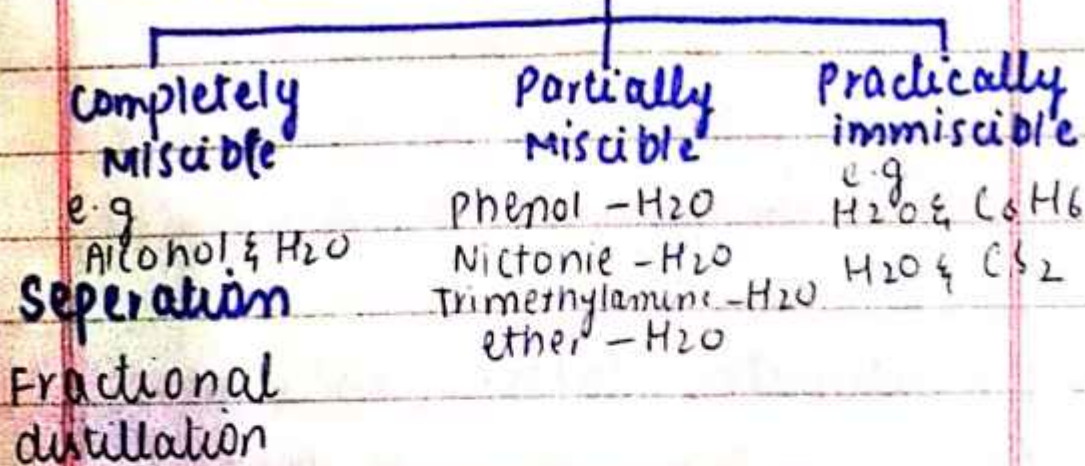 Completely Miscible
e.g
Alcohol & H2O
Seperation
Fractional
distillation
Partially
Miscible
Phenol - H2O
Nictonie - H2O
Trimethylamine - H2O
ether - H2O
Practically
immiscible
e.g
H2O & C6H6
H2O & CS2